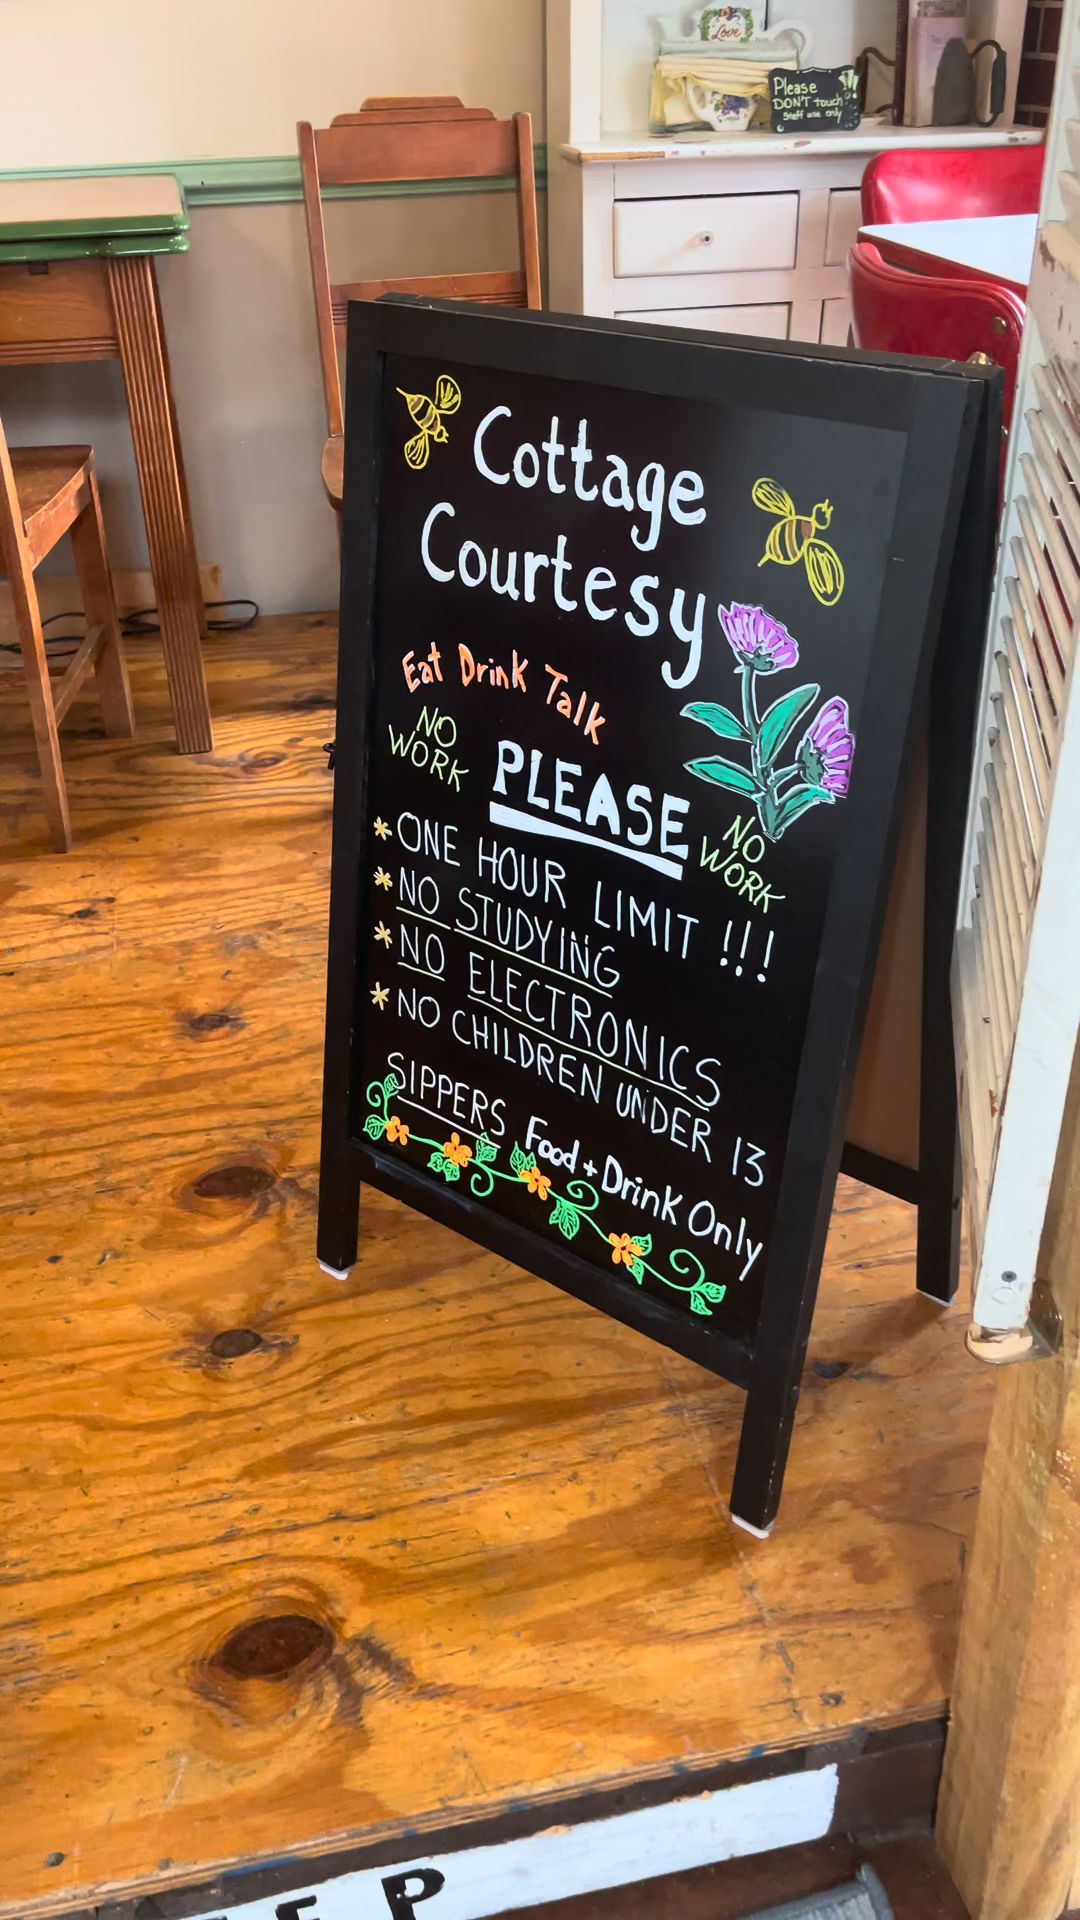 Love
Please
DON'T touch
staff use only
Cottage
Courtesy
Eat Drink Talk
NO
WORK
PLEASE
NO
WORK
* ONE HOUR LIMIT !!!
* NO STUDYING
* NO ELECTRONICS
* NO CHILDREN UNDER 13
SIPPERS Food + Drink Only
EP